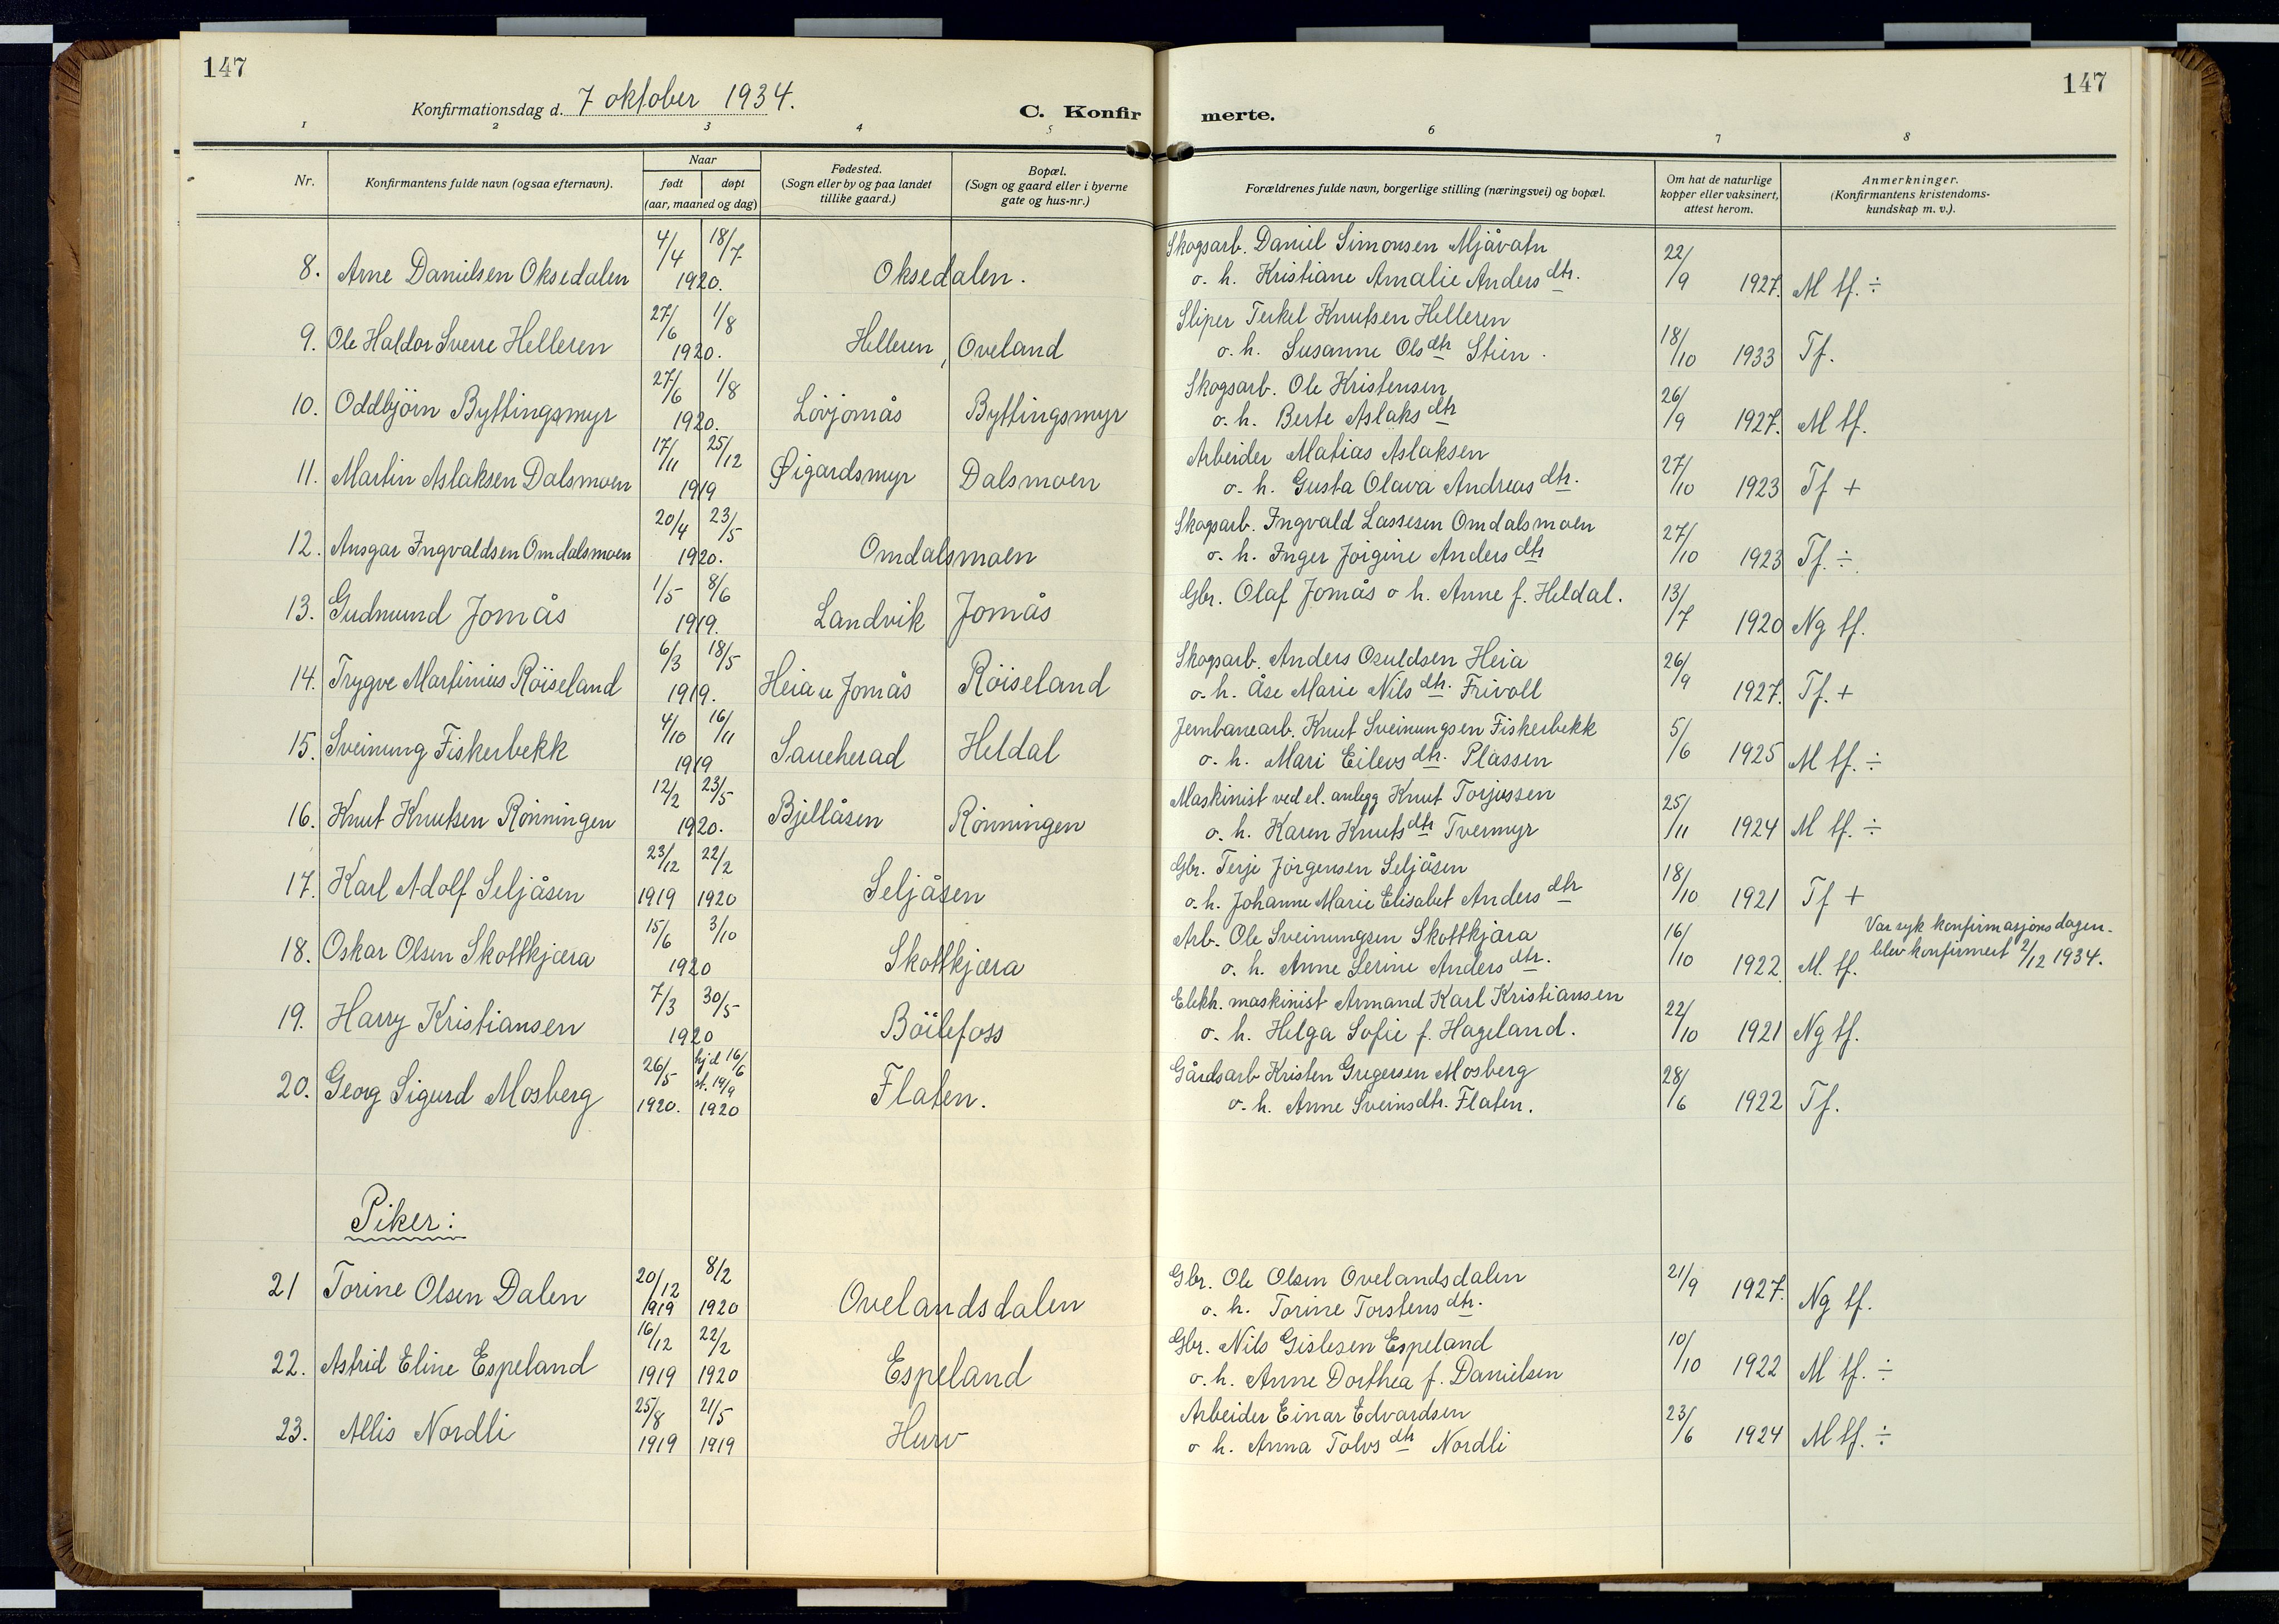 147
147
Konfirmationsdag d. 7 oktober 1934.
C. Konfir merte.
1 2 3 4 5 6 7 8
Nr.
Konfirmantens fulde navn (ogsaa efternavn).
Naar
født døpt
(aar, maaned og dag)
Fødested.
(Sogn eller by og paa landet
tillike gaard.)
Bopæl.
(Sogn og gaard eller i byerne
gate og hus-nr.)
Forældrenes fulde navn, borgerlige stilling (næringsvei) og bopæl.
Om hat de naturlige
kopper eller vaksinert,
attest herom.
Anmerkninger.
(Konfirmantens kristendoms-
kundskap m. v.).
4/4 18/7 Skogsarb. Daniel Simonsen Mjåvatn 22/
8. Arne Danielsen Oksedalen 1920. Oksedalen. o. h. Kristiane Amalie Anders dtr. /9 1927. M tf. ÷
27/6 1/8 Sliper Terkel Knutsen Helleren
9. Ole Haldor Sverre Helleren 1920. Helleren, Oveland o. h. Susanne Ols dtr Stien. 18/10 1933 Tf.
27/6 1/8 Skogsarb. Ole Kristensen
10. Oddbjörn Byttingsmyr 1920. Lövjomås Byttingsmyr o. h. Berte Aslaks dtr 26/9 1927. M tf.
17/11 25/12 Arbeider Matias Aslaksen
11. Martin Aslaksen Dalsmoen 1919 Øigardsmyr Dalsmoen o. h. Gusta Olava Andreas dtr. 27/10 1923 Tf +
20/4 23/5 Skogsarb. Ingvald Lassesen Omdalsmoen
12. Ansgar Ingvaldsen Omdalsmoen 1920. Omdalsmoen o. h. Inger Jörgine Anders dtr 27/10 1923 Tf. ÷
1/5 8/6 Gbr. Olaf Jomås o h. Anne f. Heldal. 13/
13. Gudmund Jomås 1919. Landvik Jomås /7 1920 Ng tf.
6/3 18/5 Skogsarb. Anders Osuldsen Heia
14. Trygve Martinius Röiseland 1919. Heia u Jomås Röiseland o. h. Åse Marie Nils dtr. Frivoll 26/9 1927. Tf. +
4/10 16/11 Jernbanearb. Knut Sveinungsen Fiskerbekk
15. Sveinung Fiskerbekk 1919 Saueherad Heldal o. h. Mari Eilevs dtr. Plassen 5/6 1925 M tf. ÷
12/2 23/5 Maskinist ved el. anlegg Knut Torjussen
16. Knut Knutsen Rönningen 1920. Bjellåsen Rönningen o. h. Karen Knuts dtr Tvermyr 25/11 1924 M tf. ÷
23/12 22/2 Gbr. Terje Jörgensen Seljåsen
17. Karl Adolf Seljåsen 1919 1920 Seljåsen o. h. Johanne Marie Elisabet Anders dtr 18/10 1921 Tf +
15/6 3/10 Arb. Ole Sveinungsen Skottkjæra Var syk konfirmasjonsdagen.
18. Oskar Olsen Skottkjæra 1920 Skottkjæra o. h. Anne Serine Anders dtr. 16/10 1922 M. tf. blev konfirmert 2/12 1934.
7/3 30/5 Elekh. maskinist Armand Karl Kristiansen
19. Harry Kristiansen 1920 Böilefoss o. h. Helga Sofie f. Hageland. 22/10 1921 Ng tf.
26/5 hjd 16/6 st. 19/9 Gårdsarb Kristen Gregersen Mosberg
20. Georg Sigurd Mosberg 1920. 1920 Flaten. o. h. Anne Sveinsdtr. Flaten. 28/6 1922 Tf.
Piker:
20/12 8/2 Gbr. Ole Olsen Ovelandsdalen
21 Torine Olsen Dalen 1919 1920 Ovelandsdalen o. h. Torine Torstens dtr. 21/9 1927. Ng tf.
16/12 22/2 Gbr. Nils Gislesen Espeland
22. Astrid Eline Espeland 1919 1920 Espeland o. h. Anne Dorthea f. Danielsen 10/10 1922 M tf. ÷
25/8 21/5 Arbeider Einar Edvardsen
23. Allis Nordli 1919 1919 Hurv o h. Anna Tolvs dtr Nordli 23/6 1924 M tf. ÷